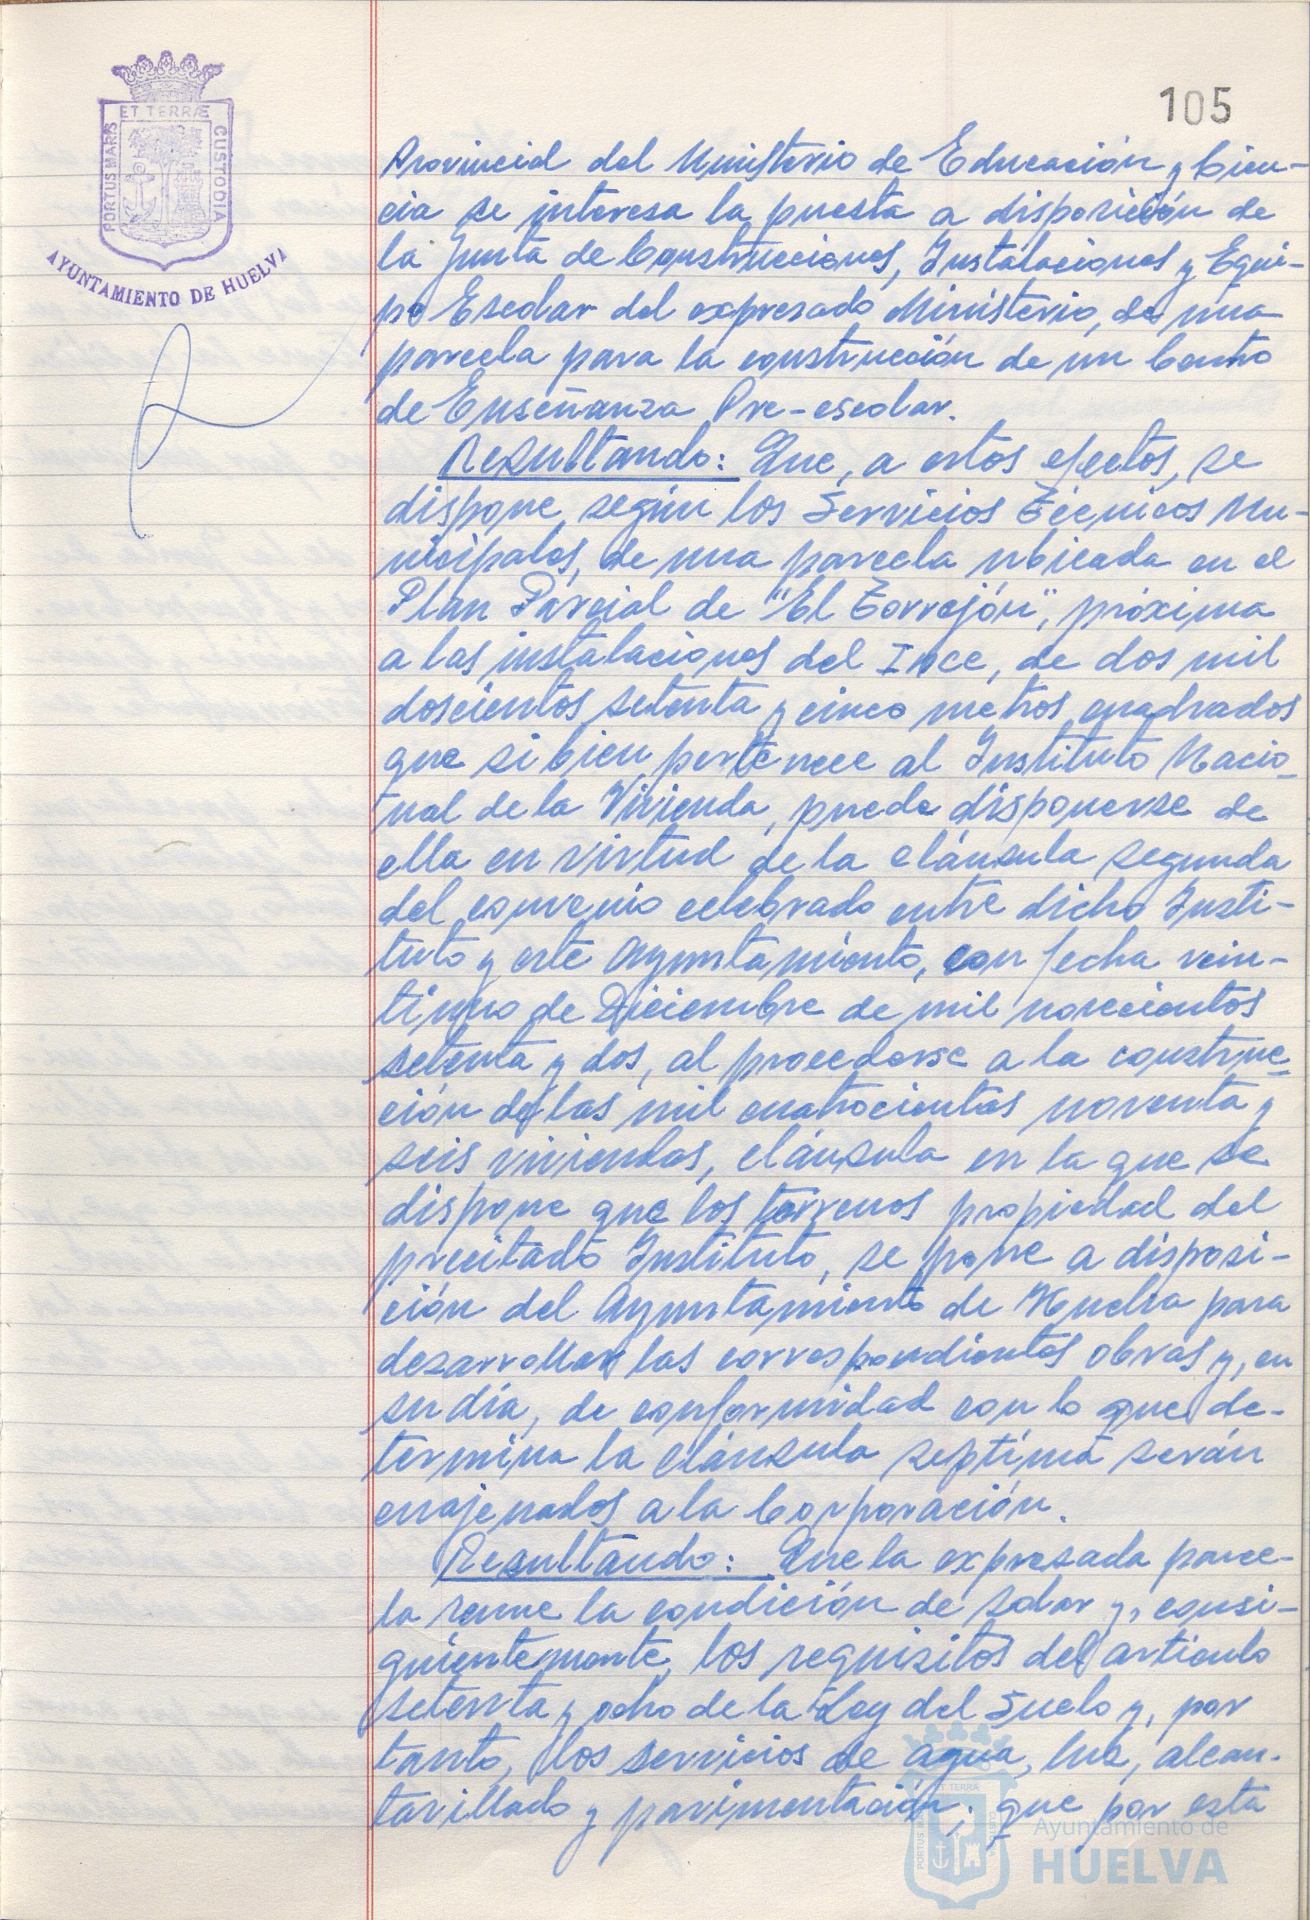 105
ET TERRÆ
PORTUS MARIS
CUSTODIA
AYUNTAMIENTO DE HUELVA
Provincial del Ministerio de Educación y Cien-
cia se interesa la puesta a disposición de
la Junta de Construcciones, Instalaciones y Equi-
po Escolar del expresado Ministerio, de una
parcela para la construcción de un Centro
de Enseñanza Pre-escolar.
Resultando: Que, a estos efectos, se
dispone, según los Servicios Técnicos Mu-
nicipales, de una parcela ubicada en el
Plan Parcial de "El Torrejón", próxima
a las instalaciones del Ince, de dos mil
doscientos setenta y cinco metros cuadrados
que si bien pertenece al Instituto Nacio-
nal de la Vivienda, puede disponerse de
ella en virtud de la cláusula segunda
del convenio celebrado entre dicho Insti-
tuto y este Ayuntamiento, con fecha vein-
tiuno de Diciembre de mil novecientos
setenta y dos, al procederse a la construc-
ción de las mil cuatrocientas noventa y
seis viviendas, cláusula en la que se
dispone que los terrenos propiedad del
precitado Instituto, se pone a disposi-
ción del Ayuntamiento de Huelva para
desarrollar las correspondientes obras y, en
su día, de conformidad con lo que de-
termina la cláusula septima serán
enajenados a la Corporación.
Resultando: Que la expresada parce-
la reune la condición de solar y, consi-
guientemente, los requisitos del artículo
setenta y ocho de la Ley del Suelo y, por
tanto, los servicios de agua, luz, alcan-
tarillado y pavimentación; que por esta
Ayuntamiento de
HUELVA